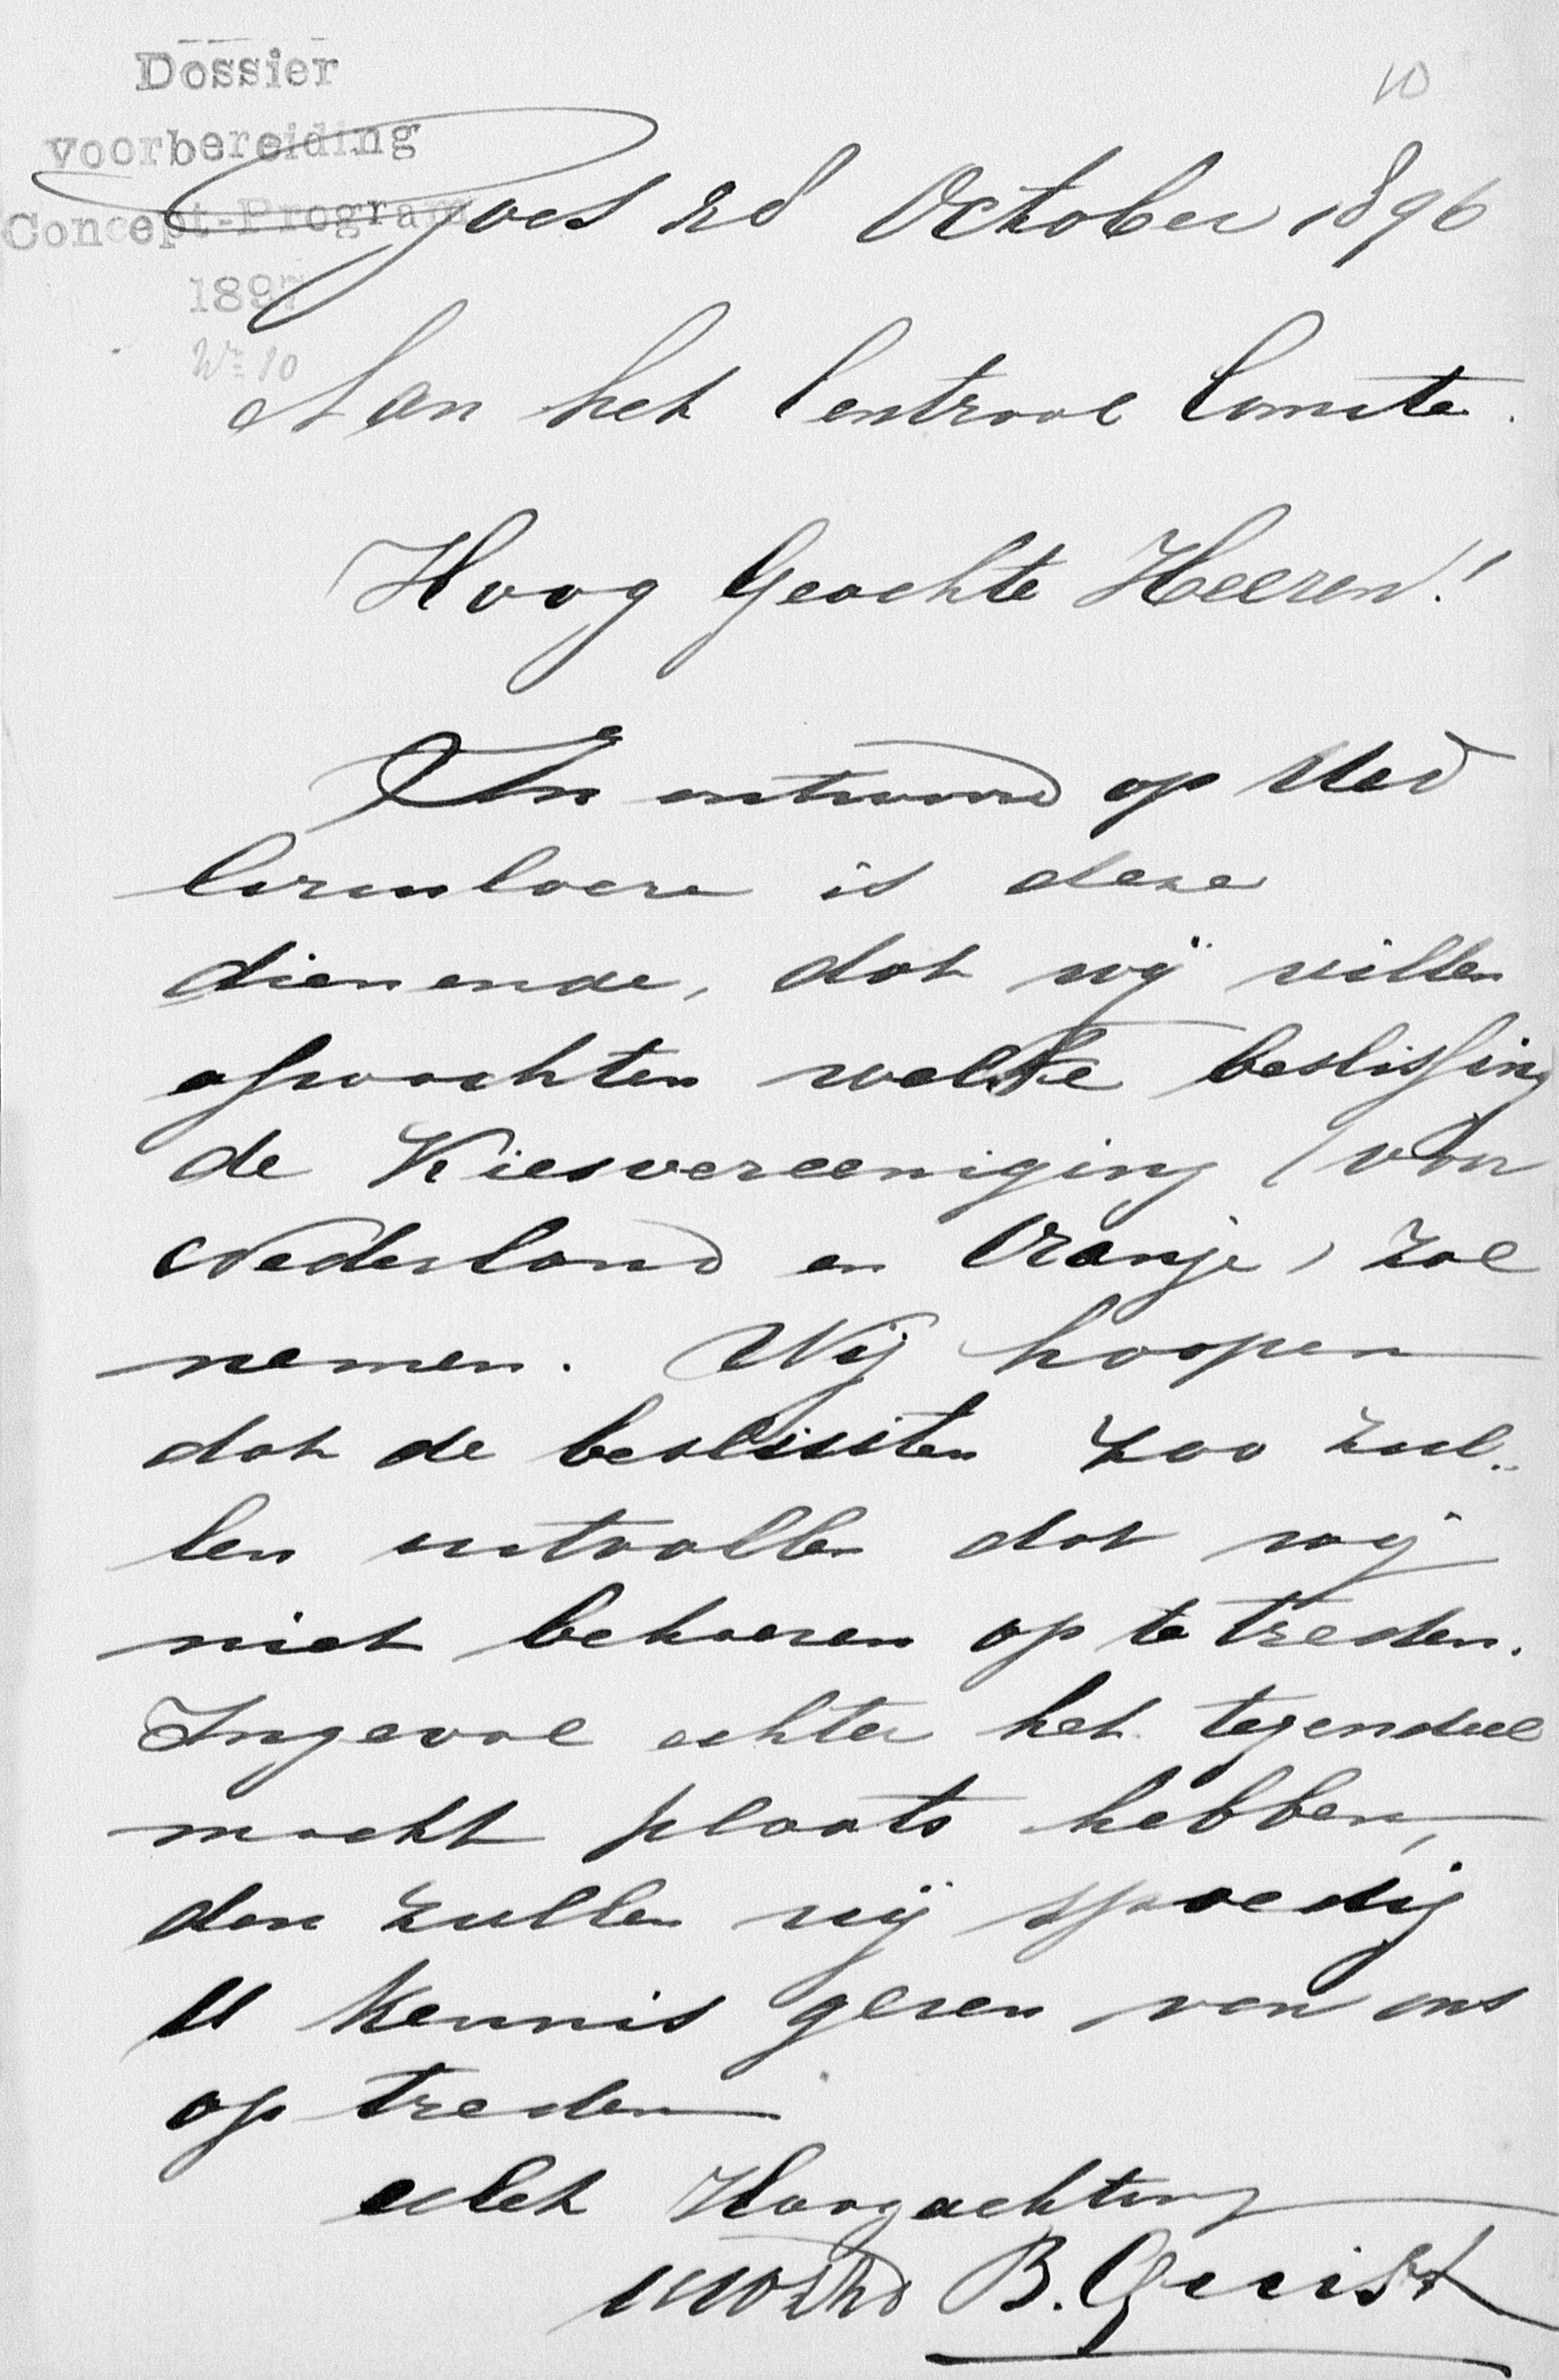 Dossier
voorbereiding
Concept-Program
1897
No 10
10
Goes 28 October 1896
Aan het Centraal Comite.
Hoog Geachte Heeren!
In antwoord op Ued
Circulaere is deze
dienende, dat wij willen
afwachten welke beslissing
de Kiesvereeniging (voor
Nederland en Oranje) zal
nemen. Wij hoopen
dat de besluiten zoo zul-
len uitvallen dat wij
niet behoeren op te treden.
Ingeval echter het tegendeel
mocht plaats hebben,
dan zullen wij spoedig
U kennis geven van ons
op treden
Met Hoogachting
B. Quist